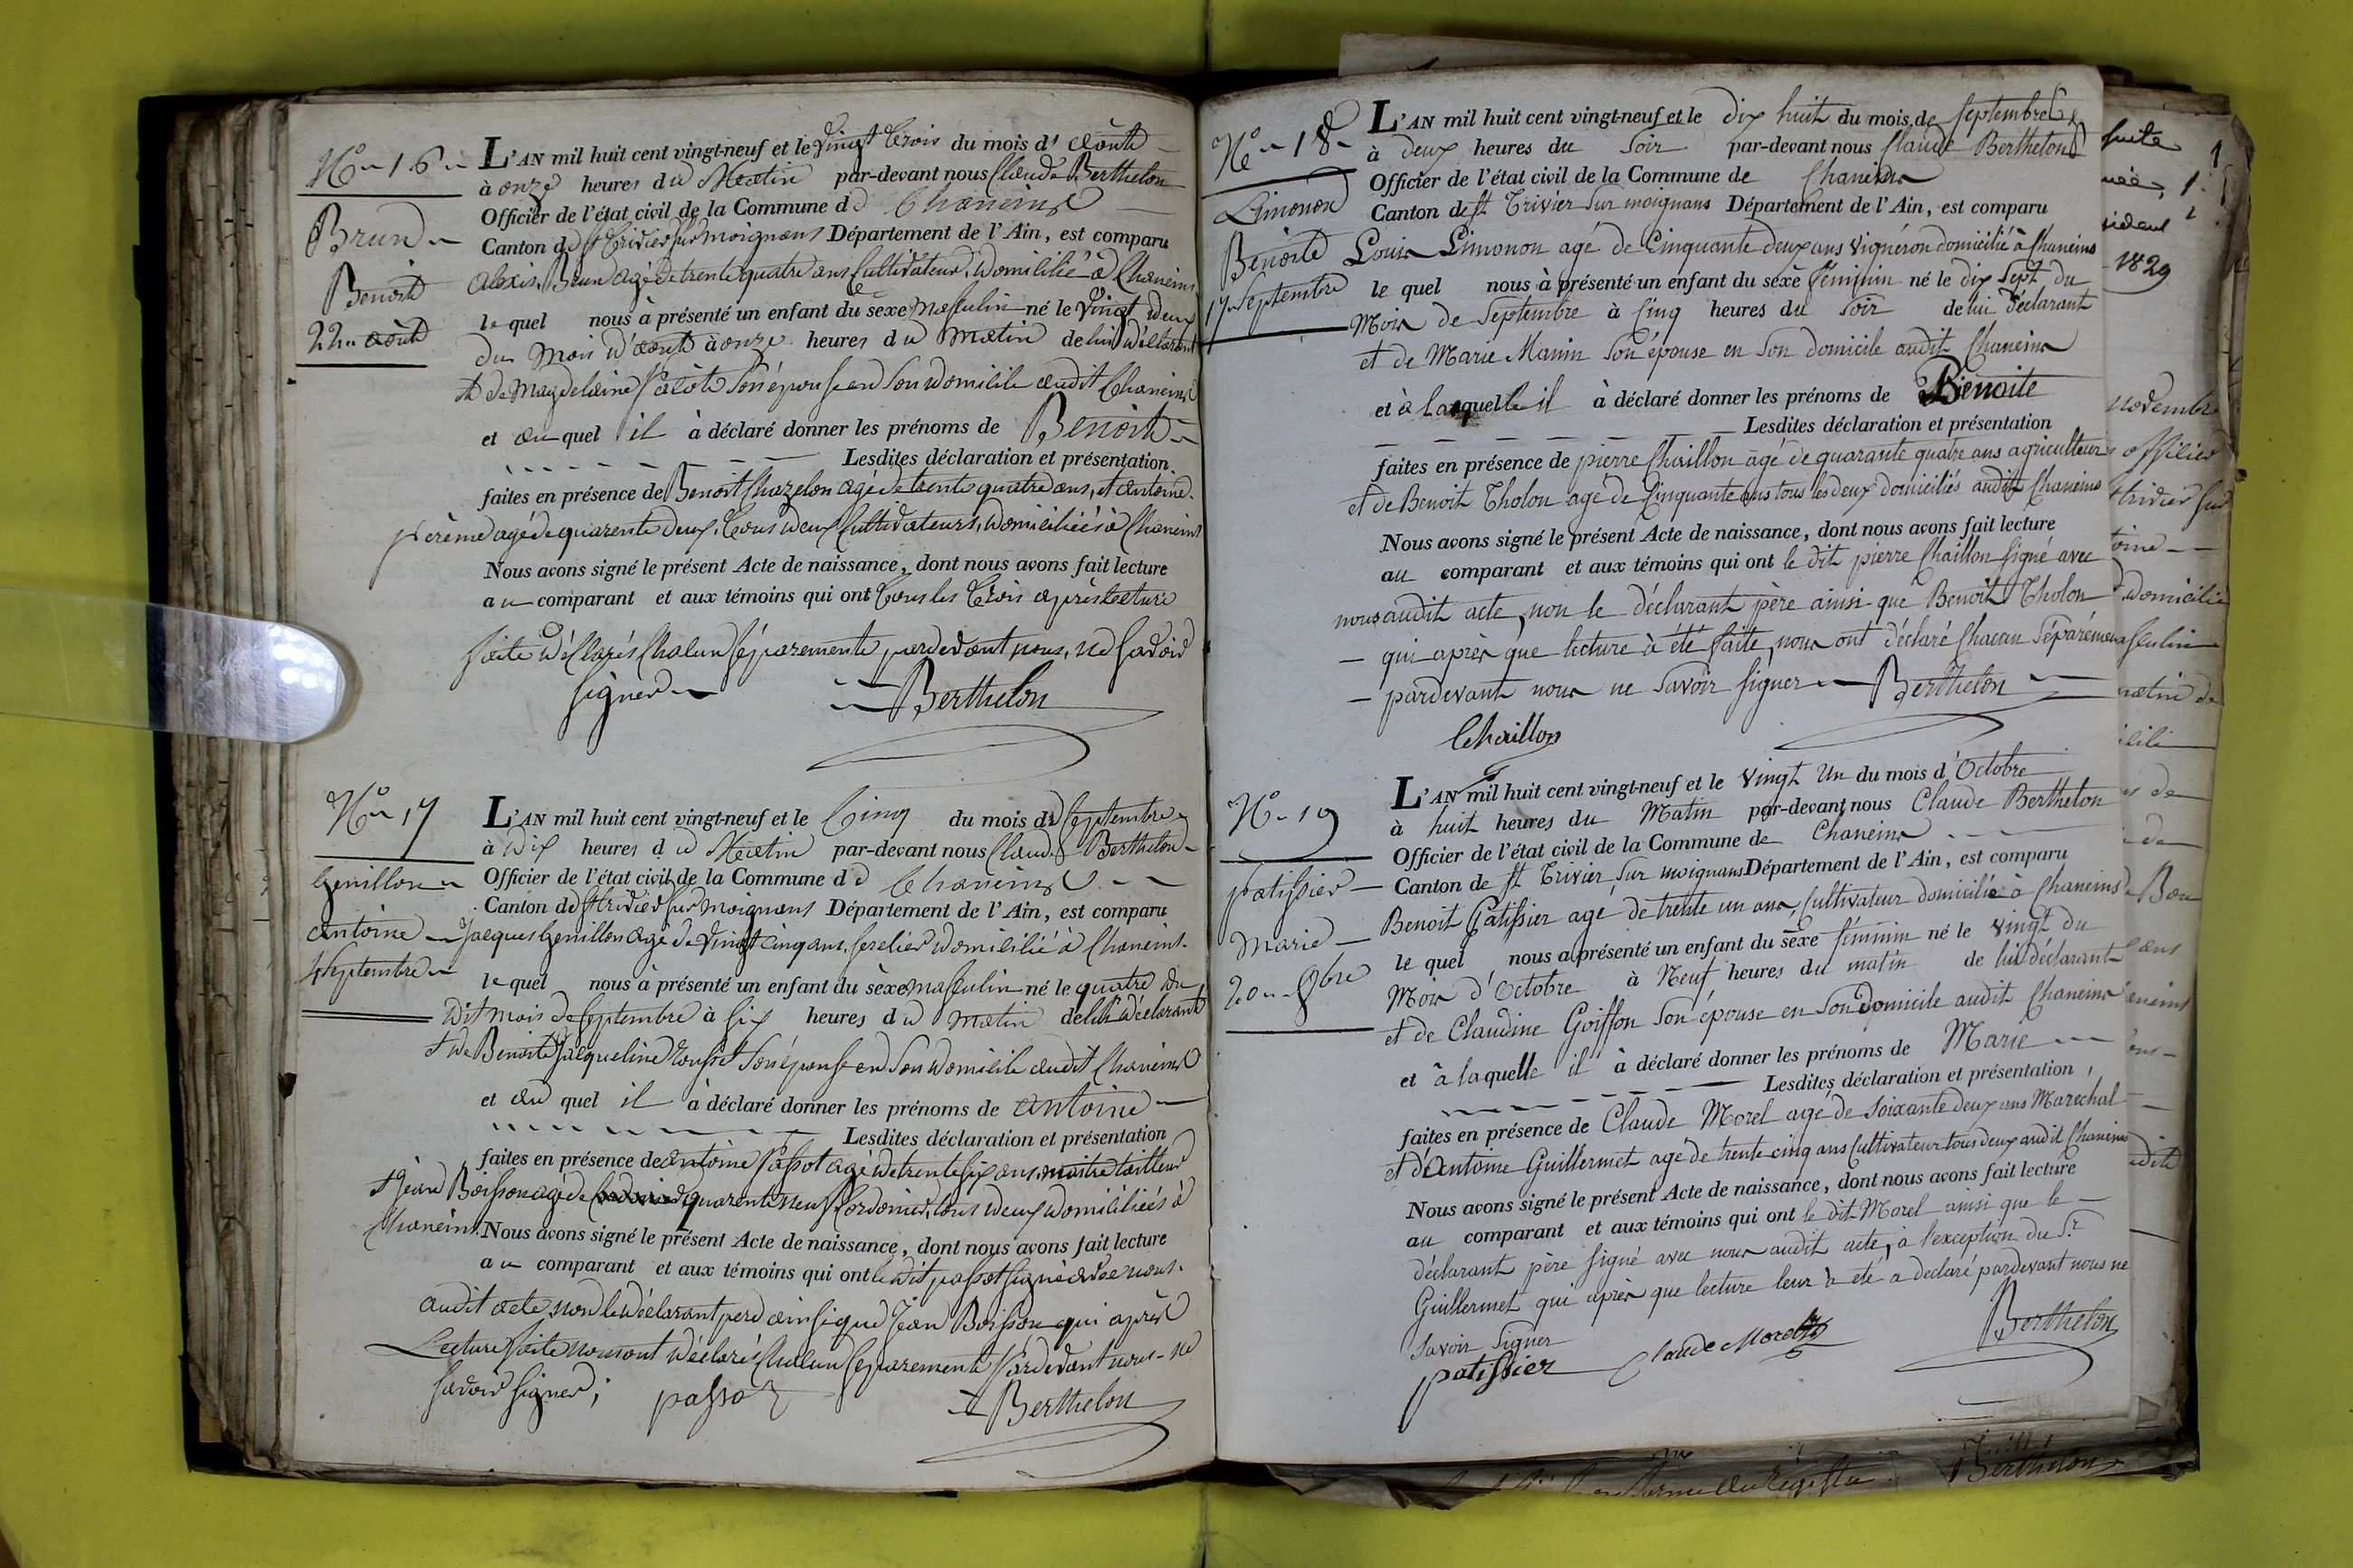 N° 16
Brun
Benoit
22 août
L'AN mil huit cent vingt-neuf et le vingt trois du mois d'août
à onze heures du Matin par-devant nous Claude Berthelon
Officier de l'état civil de la Commune de Chaneins
Canton de St Trivier sur moignans Département de l'Ain, est comparu
Alexis Brun agé de trente quatre ans Cultivateur, domicilié à Chaneins
le quel nous à présenté un enfant du sèxe masculin né le vingt deux
du mois d'août à onze heures du matin de lui déclarant
et de Magdelaine son épouse en son domicile audit Chaneins
et au quel il à déclaré donner les prénoms de Benoit
Lesdites déclaration et présentation
faites en présence de Benoit Chazelon agé de trente quatre ans, et antoine
agé de quarente deux, tous deux Cultivateurs, domiciliés à Chaneins
Nous avons signé le présent Acte de naissance, dont nous avons fait lecture
au comparant et aux témoins qui ont tous les trois après lecture
faite déclarés chacun séparement pardevant nous, ne savoir
signer Berthelon
N° 17
Genillon
antoine
4 septembre
L'AN mil huit cent vingt-neuf et le Cinq du mois de septembre
à dix heures du Matin par-devant nous Claude Berthelon
Officier de l'état civil de la Commune de Chaneins
Canton de St trivier sur moignans Département de l'Ain, est comparu
Jacques Genillon agé de vingt cinq ans, domicilié à Chaneins
le quel nous à présenté un enfant du sèxe masculin né le quatre du
dit mois de septembre à six heures du matin de lui déclarant
et de Benoite Jacqueline son épouse en son domicile audit Chaneins
et au quel il à déclaré donner les prénoms de antoine
Lesdites déclaration et présentation
faites en présence de antoine passot agé de trente six ans, maitre tailleur
et Jean Boisson agé de quarente neuf Cordonier, tous deux domiciliés à
Chaneins. Nous avons signé le présent Acte de naissance, dont nous avons fait lecture
au comparant et aux témoins qui ont le dit passot signé avec nous
audit acte, non le déclarant pere ainsi que Jean Boisson qui après
Lecture faite nous ont déclaré chacun separement pardevant nous ne
savoir signer; passot Berthelon
N° 18
Limonon
Benoite
17 septembre
L'AN mil huit cent vingt-neuf et le dix huit du mois de septembre
à deux heures du soir par-devant nous Claude Berthelon
Officier de l'état civil de la Commune de Chaneins
Canton de St Trivier sur moignans Département de l'Ain, est comparu
Louis Limonon agé de Cinquante deux ans vigneron domicilié à Chaneins
le quel nous à présenté un enfant du sèxe féminin né le dix sept du
Mois de septembre à Cinq heures du soir de lui déclarant
et de Marie Manin son épouse en son domicile audit Chaneins
et à laquelle il à déclaré donner les prénoms de Benoite
Lesdites déclaration et présentation
faites en présence de pierre Chaillon agé de quarante quatre ans agriculteur
et de Benoit Tholon agé de Cinquante ans tous les deux domiciliés audit Chaneins
Nous avons signé le présent Acte de naissance, dont nous avons fait lecture
au comparant et aux témoins qui ont le dit pierre Chaillon signé avec
nous audit acte, non le déclarant père ainsi que Benoit Tholon
qui après que lecture à été faite, nous ont déclaré chacun séparément
pardevant nous ne savoir signer Berthelon
Chaillon
N° 19
patissier
Marie
20 8bre
L'AN mil huit cent vingt-neuf et le vingt Un du mois d'Octobre
à huit heures du Matin par-devant nous Claude Berthelon
Officier de l'état civil de la Commune de Chaneins
Canton de St Trivier sur moignans Département de l'Ain, est comparu
Benoit Patissier agé de trente un ans, Cultivateur domicilié à Chaneins
le quel nous à présenté un enfant du sèxe féminin né le vingt du
Mois d'Octobre à Neuf heures du matin de lui déclarant
et de Claudine Goiffon son épouse en son Domicile audit Chaneins
et à laquelle il à déclaré donner les prénoms de Marie
Lesdites déclaration et présentation
faites en présence de Claude Morel agé de soixante deux ans Marechal
et d'Antoine Guillermet agé de trente cinq ans Cultivateur tous deux audit Chaneins
Nous avons signé le présent Acte de naissance, dont nous avons fait lecture
au comparant et aux témoins qui ont le dit Morel ainsi que le
déclarant père signé avec nous audit acte, à l'exception du Sr
Guillermet qui après que lecture leur à été a declaré pardevant nous ne
savoir signer
patissier Claude Morel Berthelon
suite
1829
novembre
officier
trivier sur
toine
domicilié
asculin
matin de
de
de
ans
Berthelon